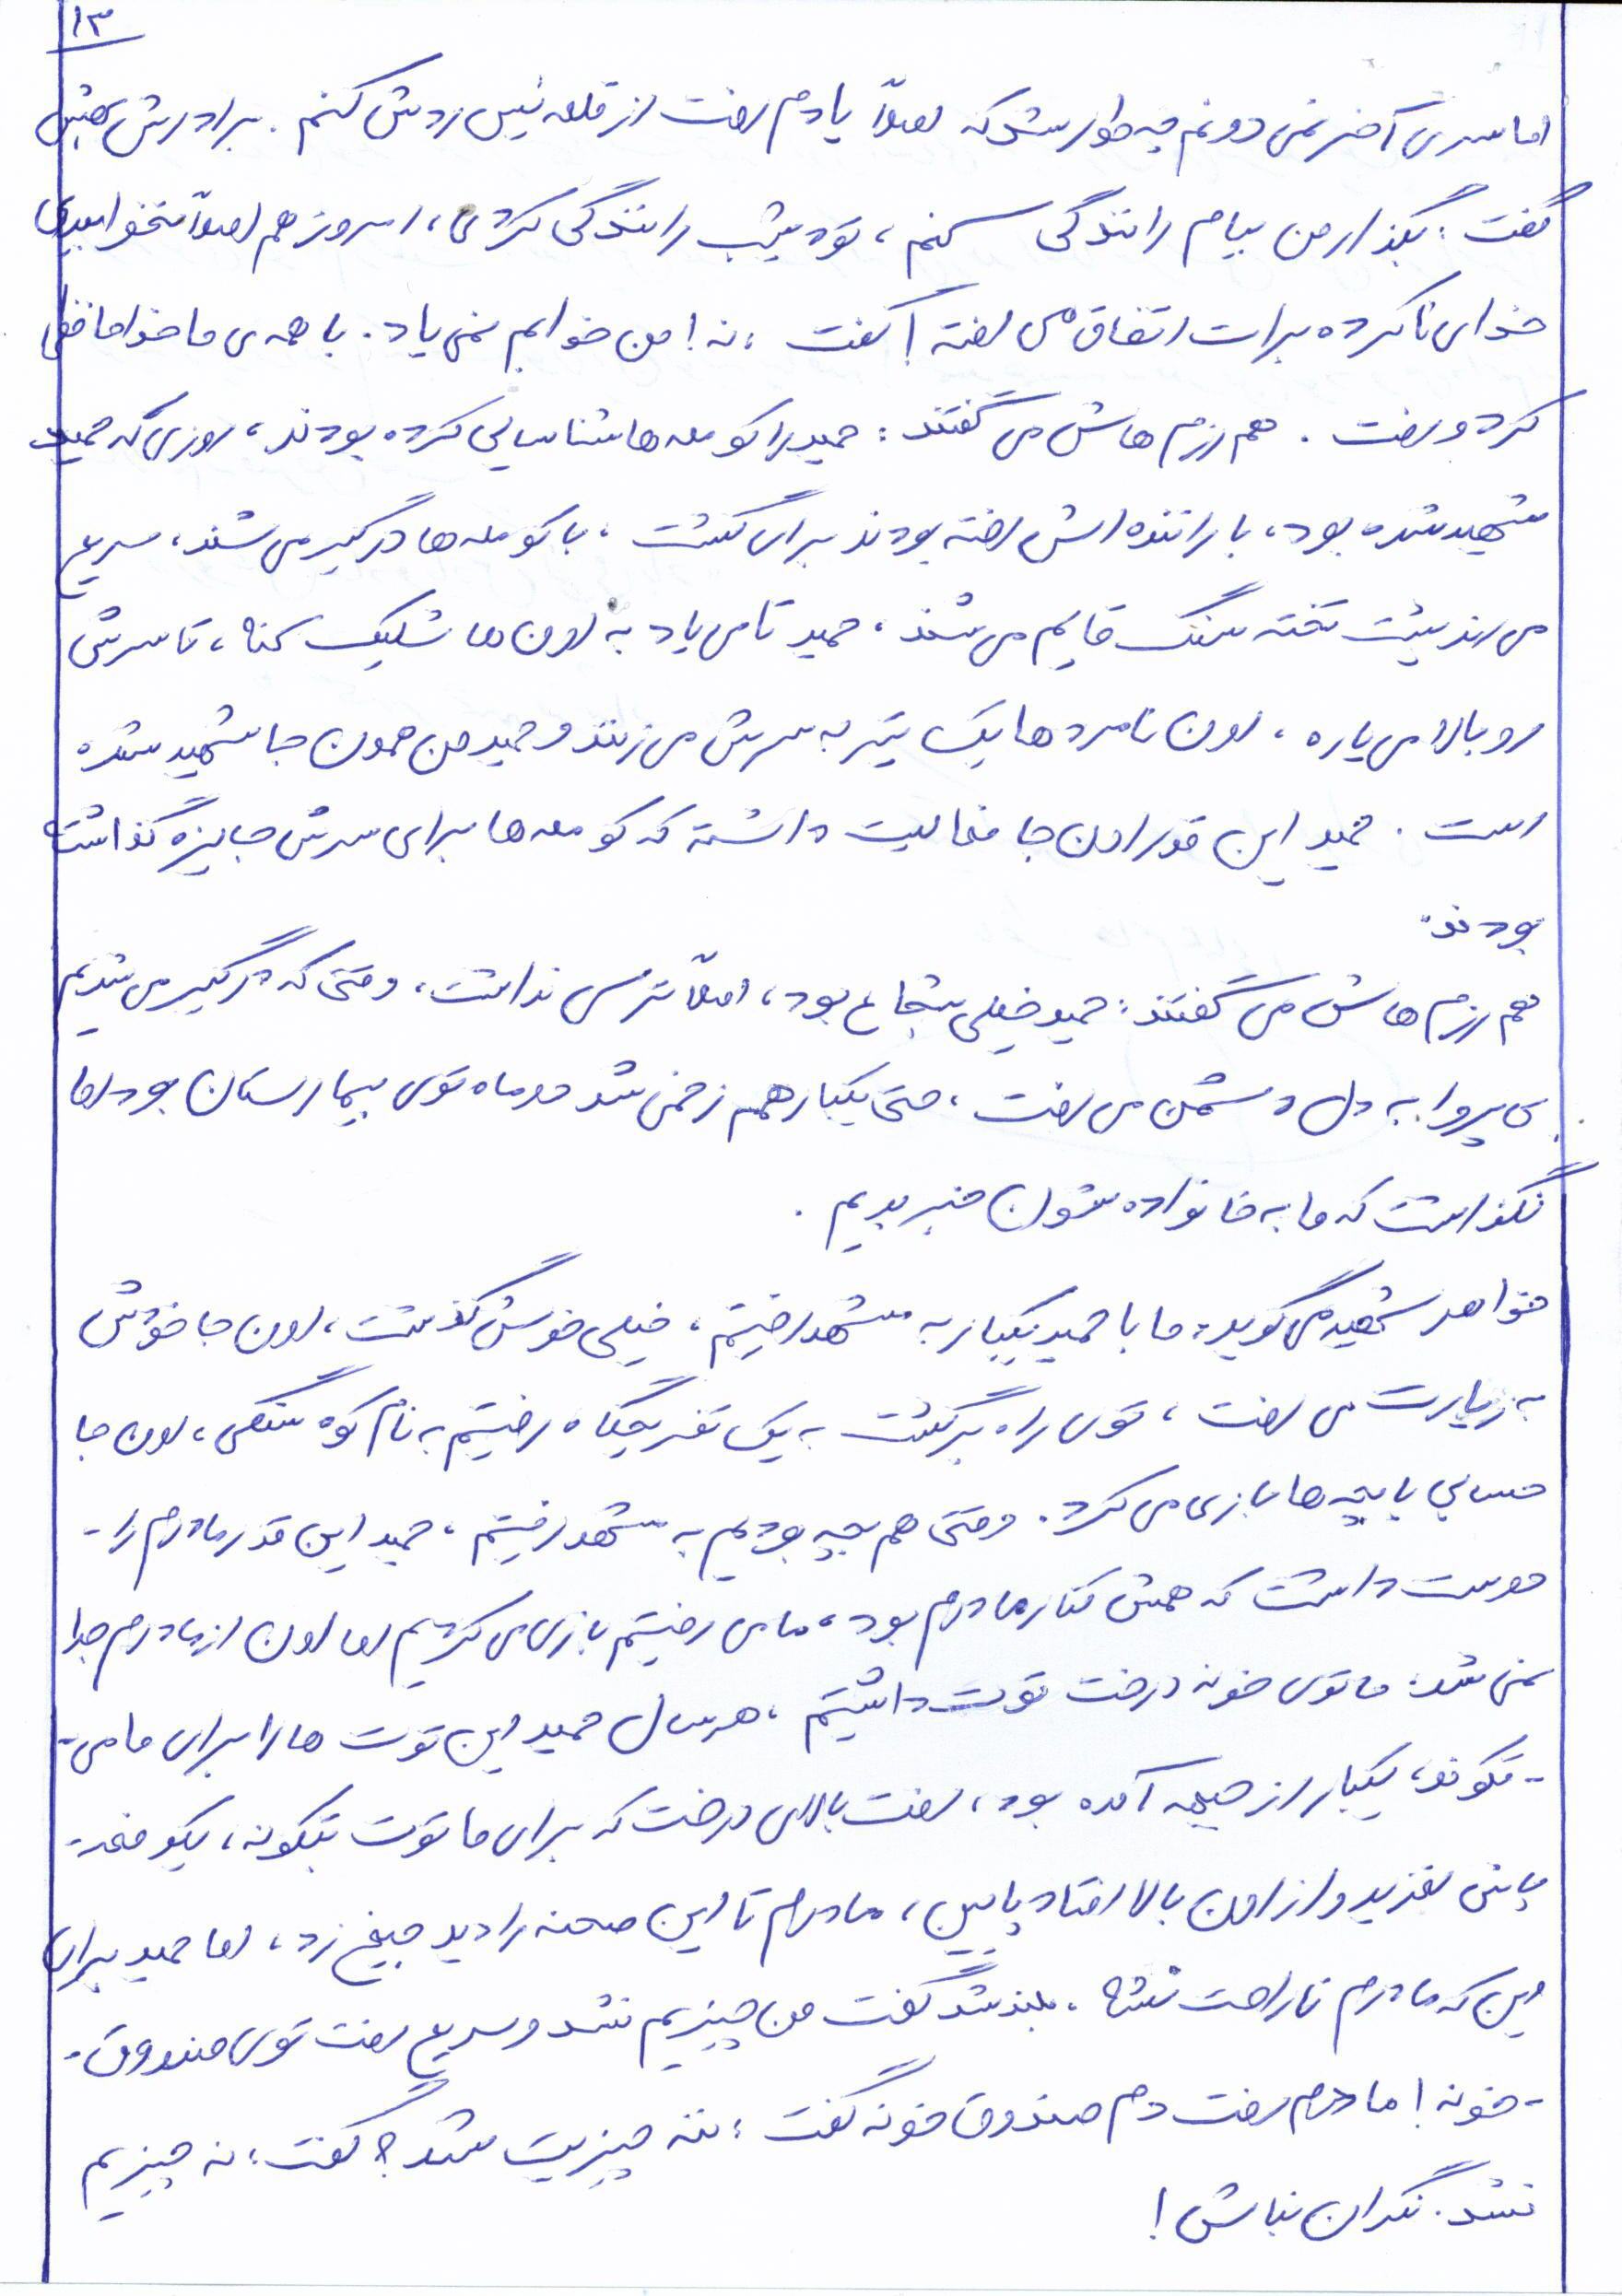 ۱۳
اما سری آخر نمی دونم چه طور شد که اصلاً یادم رفت از قلعه ئیس ردش کنم. برادرش بهش
گفت: بگذار من بیام رانندگی کنم، تو دیشب رانندگی کردی، امروز هم اصلاً نخوابیدی
خدای ناکرده برات اتفاق می افته! گفت: نه! من خوابم نمی یاد. با همه ی ما خداحافظی
کرد و رفت. هم رزم هاش می گفتند: حمید را کومله ها شناسایی کرده بودند، روزی که حمید
شهید شده بود، با راننده اش رفته بودند برای گشت، با کومله ها درگیر می شند، سریع
می رند پشت تخته سنگ قایم می شند، حمید تا می یاد به اون ها شلیک کنه، تا سرش
رو بالا می یاره، اون نامرد ها یک تیر به سرش می زنند و حمید من همون جا شهید شده
است. حمید این قدر اون جا فعالیت داشته که کومله ها برای سرش جایزه گذاشته
بودند.
هم رزم هاش می گفتند: حمید خیلی شجاع بود، اصلاً ترسی نداشت، وقتی که درگیر می شدیم
بی پروا به دل دشمن می رفت، حتی یکبار هم زخمی شد دو ماه توی بیمارستان بود اما
نگذاشت که ما به خانواده شون خبر بدیم.
خواهر شهید می گوید: ما با حمید یکبار به مشهد رفتیم، خیلی خوش گذشت، اون جا خودش
به زیارت می رفت، توی راه برگشت به یک تفریحگاه رفتیم به نام کوه سنگی، اون جا
حسابی با بچه ها بازی می کرد. وقتی هم بچه بودیم به مشهد رفتیم، حمید این قدر مادرم را-
دوست داشت که همش کنار مادرم بود، ما می رفتیم بازی می کردیم اما اون از مادرم جدا
نمی شد. ما توی خونه درخت توت داشتیم، هر سال حمید این توت ها را برای ما می-
-تکوند، یکبار از جبهه آمده بود، رفت بالای درخت که برای ما توت بتکونه، یکو دفعه-
پاش لغزید و از اون بالا افتاد پایین، مادرم تا این صحنه را دید جیغ زد، اما حمید برای
این که مادرم ناراحت نشه، بلند شد گفت من چیزیم نشد و سریع رفت توی صندوق-
-خونه! مادرم رفت دم صندوق خونه گفت: ننه چیزیت شد؟ گفت: نه چیزیم
نشد. نگران نباش!